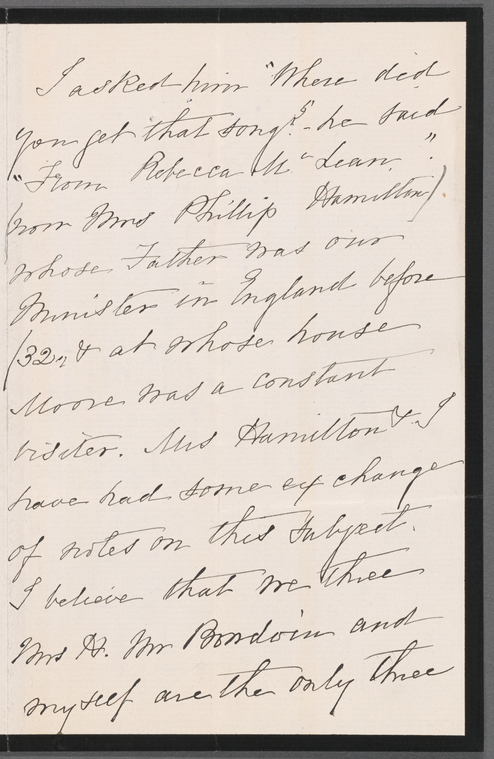 I asked him "Where did
you get that song?" - he said
"From Rebecca Mc Lean."
(now Mrs Phillip Hamilton)
whose Father was our
Minister in England before
/32, & at whose house
Moore was a constant
visiter. Mrs Hamilton & I
have had some exchange
of notes on this subject.
I believe that we three
Mrs H. Mr Bowdoin and
myself are the only three